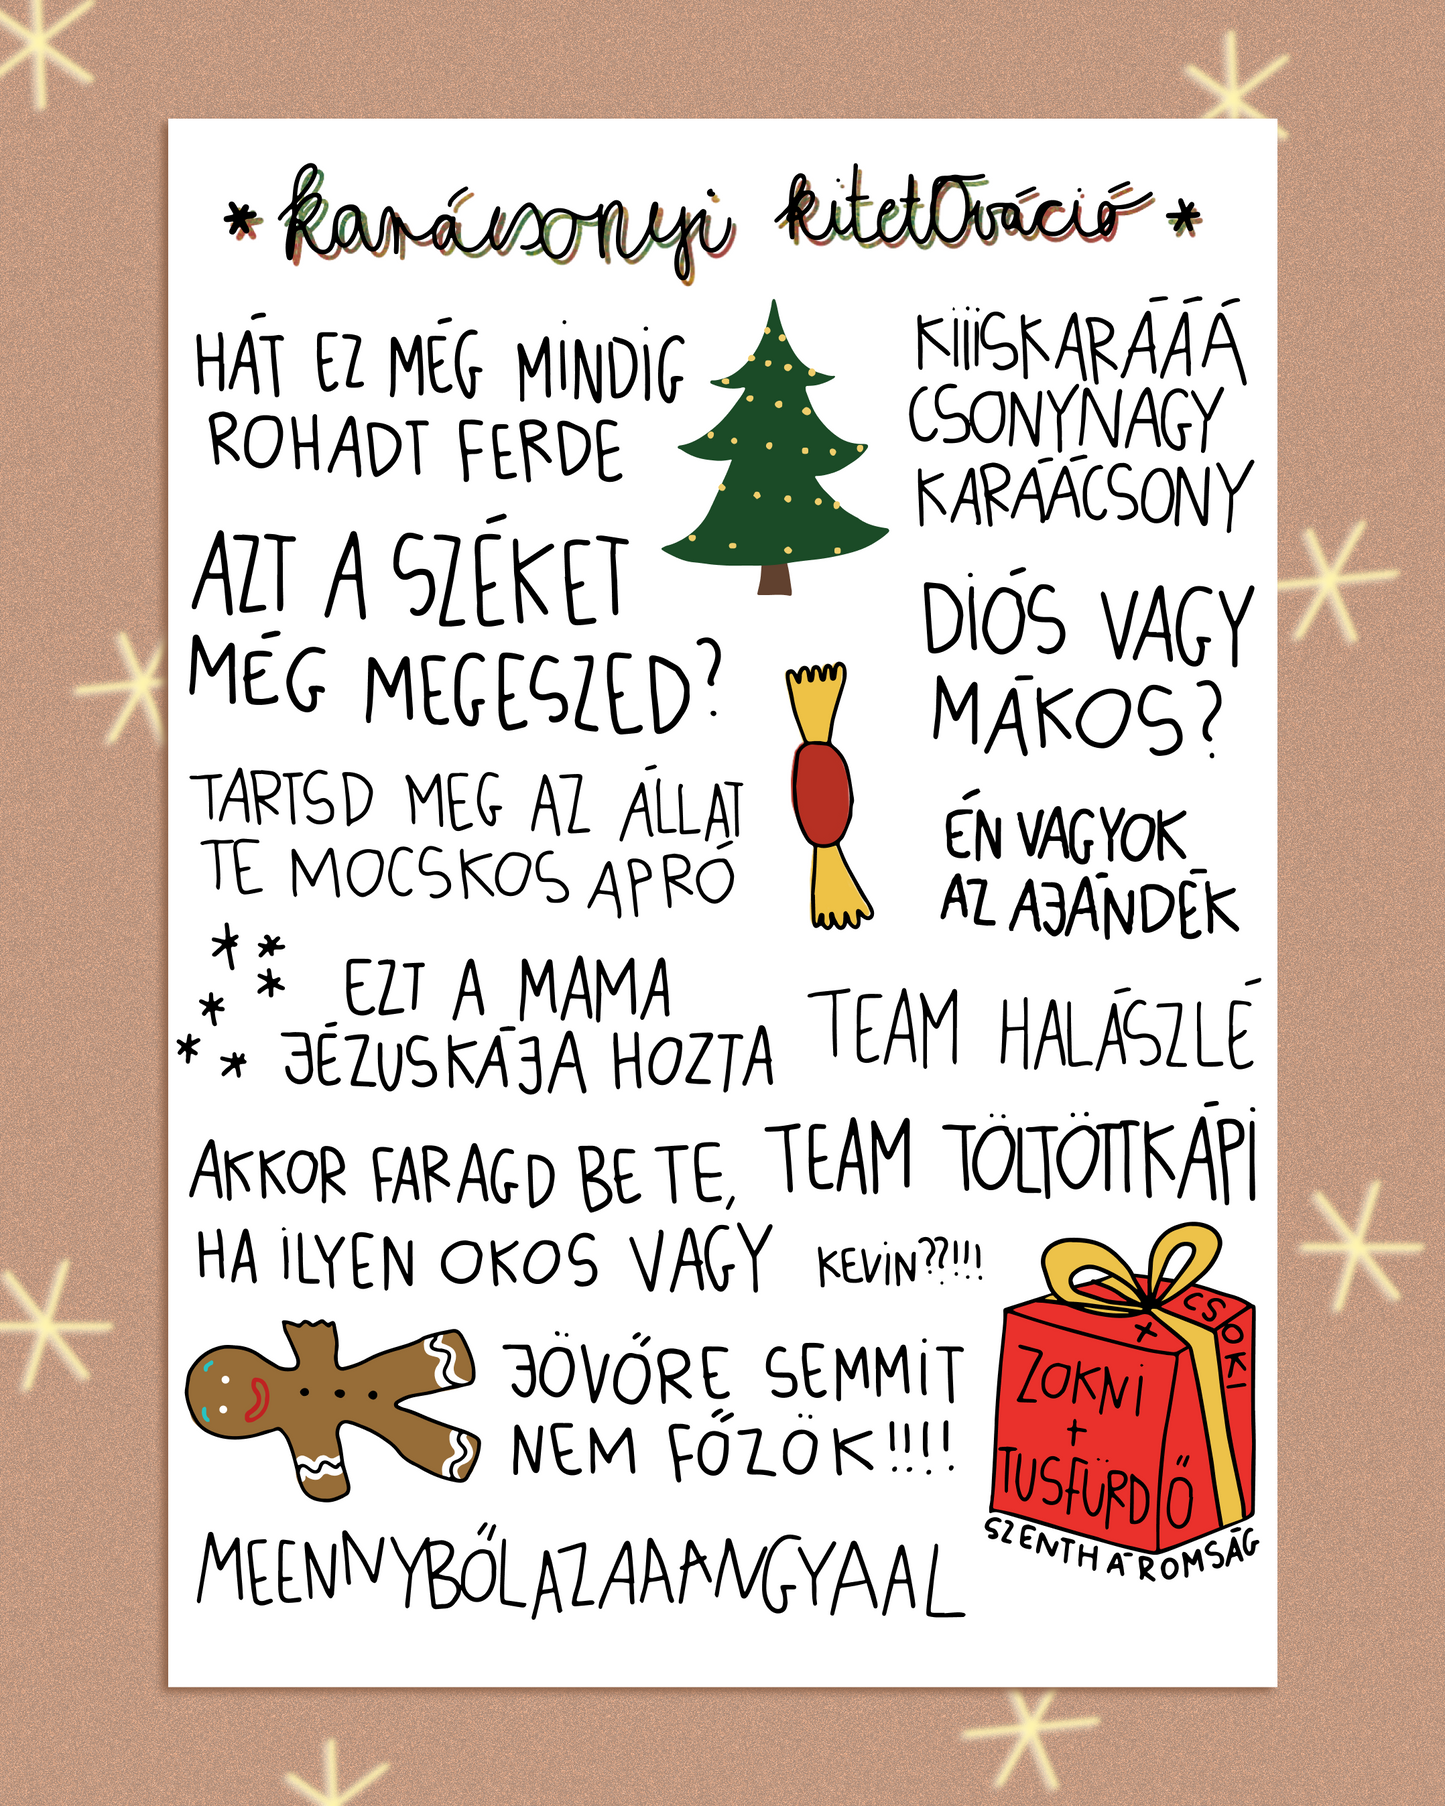 * karácsonyi kitetOváció *
HÁT EZ MÉG MINDIG
ROHADT FERDE
KIIISKARÁÁÁ
CSONYNAGY
KARÁÁCSONY
AZT A SZÉKET
MÉG MEGESZED?
DIÓS VAGY
MÁKOS?
TARTSD MEG AZ ÁLLAT
TE MOCSKOS APRÓ
ÉN VAGYOK
AZ AJÁNDÉK
EZT A MAMA
JÉZUSKÁJA HOZTA
TEAM HALÁSZLÉ
TEAM TÖLTÖTTKÁPI
AKKOR FARAGD BE TE,
HA ILYEN OKOS VAGY
KEVIN??!!!
JÖVŐRE SEMMIT
NEM FŐZÖK!!!!
ZOKNI
+
TUSFÜRDŐ
+ CSOKI
SZENTHÁROMSÁG
MEENNYBŐLAZAAANGYAAL